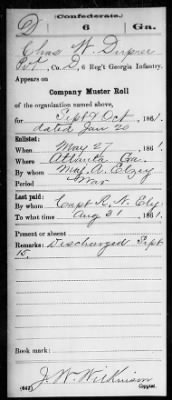 (Confederate.)
D 6 Ga.
Chas W.
Pvt, Co. D, 6 Reg't Georgia Infantry.
Appears on
Company Muster Roll
of the organization named above,
for Sept & Oct, 1861.
dated Jan 20
Enlisted:
When May 27, 1861.
Where Atlanta Ga.
By whom Maj. A. Elzey
Period War
Last paid:
By whom Capt R. N. Ely
To what time Aug 31, 1861.
Present or absent
Remarks: Discharged Sept
15.
Book mark:
J. W. Wilkinson
(642) Copyist.